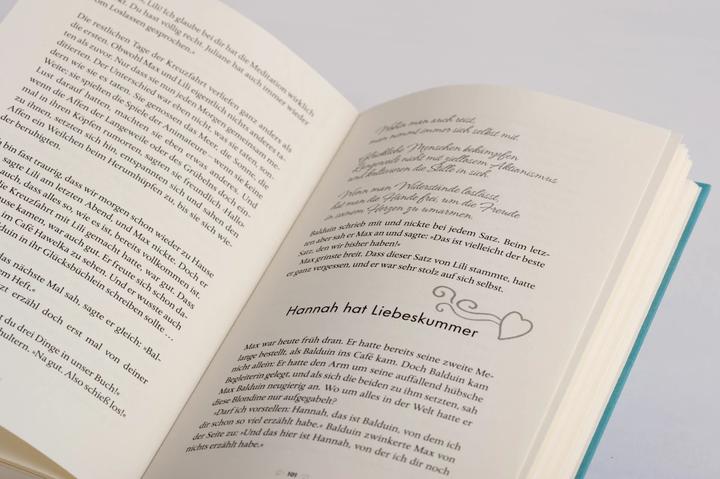 s, Lili! Ich glaube bei dir hat die Meditation wirklich
kt. Du hast völlig recht. Juliane hat auch immer wieder
om Loslassen gesprochen.«
Die restlichen Tage der Kreuzfahrt verliefen ganz anders als
die ersten. Obwohl Max und Lili eigentlich nichts anderes ta-
ten als zuvor. Nur dass sie nun jeden Morgen gemeinsam me-
ditierten. Der Unterschied war eben nicht, was sie taten, son-
dern wie sie es taten. Sie genossen das Meer, die Sonne, die
Weite; sie spielten die Spiele der Animateure – wenn sie keine
Lust darauf hatten, machten sie eben etwas anderes. Und
wenn die Affen der Langeweile oder des Grübelns doch ein-
mal in ihren Köpfen rumorten, sagten sie freundlich Hallo
zu ihnen, setzten sich hin, entspannten sich und sahen den
Affen ein Weilchen beim Herumhüpfen zu, bis sie sich wie-
der beruhigten.
bin fast traurig, dass wir morgen schon wieder zu Hause
sagte Lili am letzten Abend, und Max nickte. Doch er
auch, dass alles so, wie es ist, bereits vollkommen ist.
e Kreuzfahrt mit Lili gemacht hatte, war gut. Dass
ause kamen, war auch gut. Er freute sich schon da-
im Café Hawelka zu sehen. Und er wusste auch
duin in ihr Glücksbüchlein schreiben sollte …
das nächste Mal sah, sagte er gleich: »Bal-
m Heft.«
tzt erzähl doch erst mal von deiner
t du drei Dinge in unser Buch!«
hultern. »Na gut. Also schieß los!«
Wohin man auch reist,
man nimmt immer sich selbst mit.
Glückliche Menschen bekämpfen
Langeweile nicht mit ziellosem Aktionismus
und bekommen die Stille in sich.
Wenn man Widerstände loslässt,
hat man die Hände frei, um die Freude
in seinem Herzen zu umarmen.
Balduin schrieb mit und nickte bei jedem Satz. Beim letz-
ten aber sah er Max an und sagte: »Das ist vielleicht der beste
Satz, den wir bisher haben!«
Max grinste breit. Dass dieser Satz von Lili stammte, hatte
er ganz vergessen, und er war sehr stolz auf sich selbst.
Hannah hat Liebeskummer
Max war heute früh dran. Er hatte bereits seine zweite Me-
lange bestellt, als Balduin ins Café kam. Doch Balduin kam
nicht allein: Er hatte den Arm um seine auffallend hübsche
Begleiterin gelegt, und als sich die beiden zu ihm setzten, sah
Max Balduin neugierig an. Wo um alles in der Welt hatte er
diese Blondine nur aufgegabelt?
»Darf ich vorstellen: Hannah, das ist Balduin, von dem ich
dir schon so viel erzählt habe.« Balduin zwinkerte Max von
der Seite zu: »Und das hier ist Hannah, von der ich dir noch
nichts erzählt habe.«
101